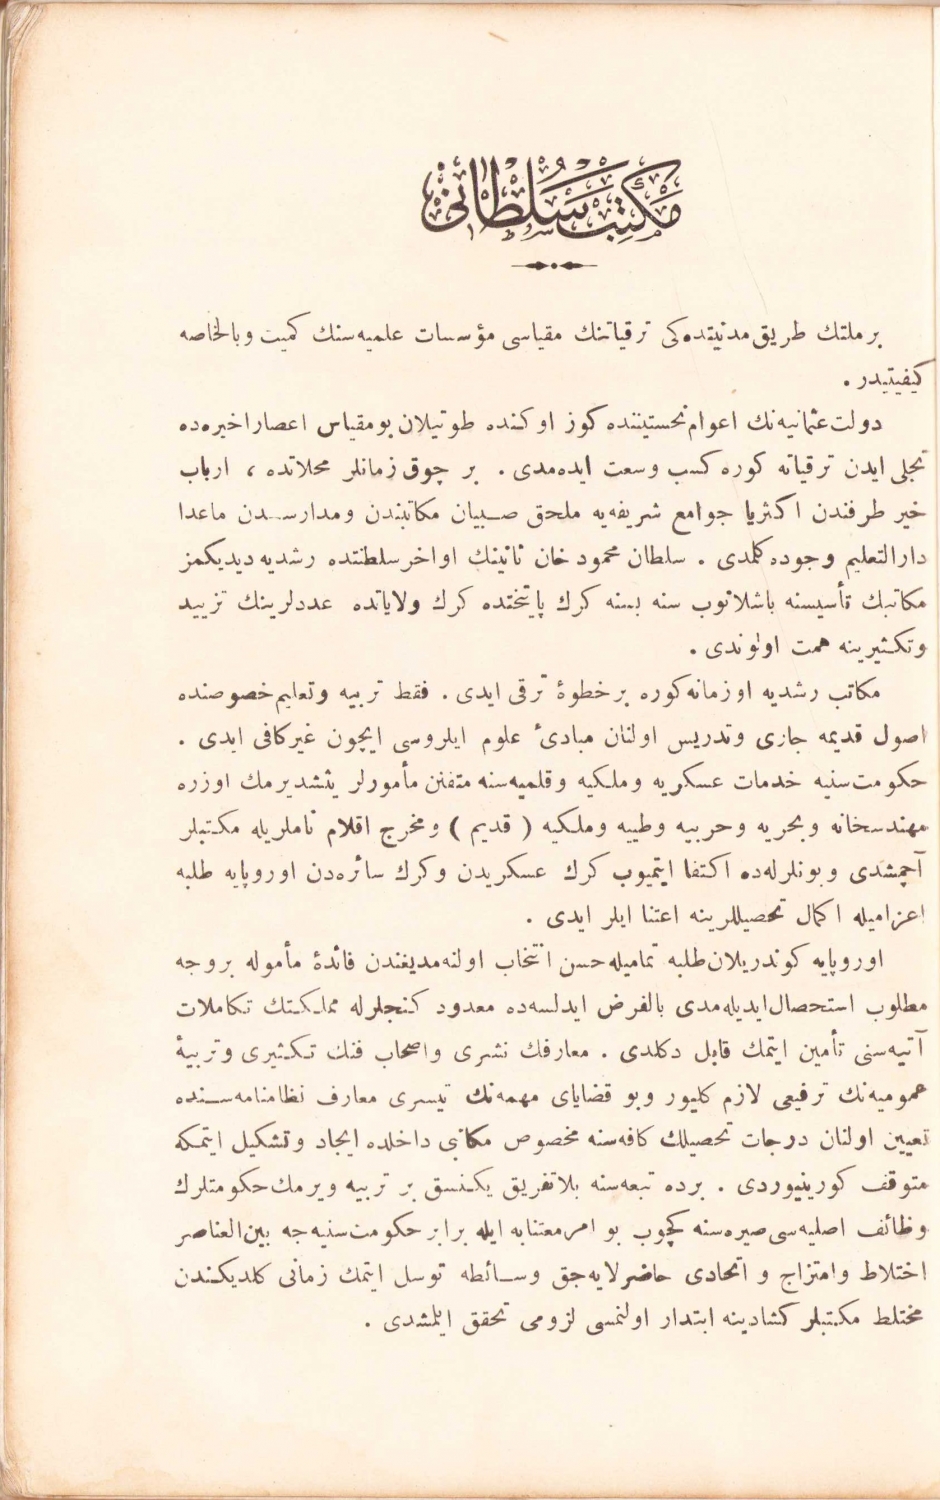 مكتب سلطانی
بر ملتك طريق مدنيتده‌كی ترقياتنك مقياسی مؤسسات علميه‌سنك كميت وبالخاصه
كيفيتيدر .
دولت عثمانيه‌نك اعوام نخستيننده كوز اوكنده طوتيلان بو مقياس اعصار اخيره‌ده
تجلی ايدن ترقياته كوره كسب وسعت ايده‌مدی . بر چوق زمانلر محلاتده ، ارباب
خير طرفندن اكثريا جوامع شريفه‌يه ملحق صبيان مكاتبندن ومدارسدن ماعدا
دارالتعليم وجوده كلمدی . سلطان محمود خان ثانينك اواخر سلطنتده رشديه ديديكمز
مكاتبك تأسيسنه باشلانوب سنه بسنه كرك پايتختده كرك ولاياتده عددلرينك تزييد
وتكثيرينه همت اولوندی .
مكاتب رشديه او زمانه كوره بر خطوهٔ ترقی ايدی . فقط تربيه وتعليم خصوصنده
اصول قديمه جاری وتدريس اولنان مبادیٔ علوم ايلروسی ايچون غيركافی ايدی .
حكومت سنيه خدمات عسكريه وملكيه وقلميه‌سنه متفنن مأمورلر يتشديرمك اوزره
مهندسخانه وبحريه وحربيه وطبيه وملكيه ( قديم ) ومخرج اقلام ناملريله مكتبلر
آچمشدی وبونلرله‌ده اكتفا ايتميوب كرك عسكريدن وكرك سائره‌دن اوروپايه طلبه
اعزاميله اكمال تحصيللرينه اعتنا ايلر ايدی .
اوروپايه كوندريلان طلبه تماميله حسن انتخاب اولنه‌مديغندن فائدهٔ مأموله بر وجه
مطلوب استحصال ايديله‌مدی بالفرض ايدلسه‌ده معدود كنجلرله مملكتك تكاملات
آتيه‌سنی تأمين ايتمك قابل دكلدی . معارفك نشری واصحاب فنك تكثيری وتربيهٔ
عموميه‌نك ترفيعی لازم كليور وبو قضايای مهمه‌نك تيسری معارف نظامنامه‌سنده
تعيين اولنان درجات تحصيلك كافه‌سنه مخصوص مكاتبی داخلده ايجاد وتشكيل ايتمكه
متوقف كورينيوردی . برده تبعه‌سنه بلاتفريق يكنسق بر تربيه ويرمك حكومتلرك
وظائف اصليه‌سی صيره‌سنه كچوب بو امر معتنابه ايله برابر حكومت سنيه‌جه بين‌العناصر
اختلاط وامتزاج و اتحادی حاضرلايه‌جق وسائطه توسل ايتمك زمانی كلديكندن
مختلط مكتبلر كشادينه ابتدار اولنمسی لزومی تحقق ايلمشدی .